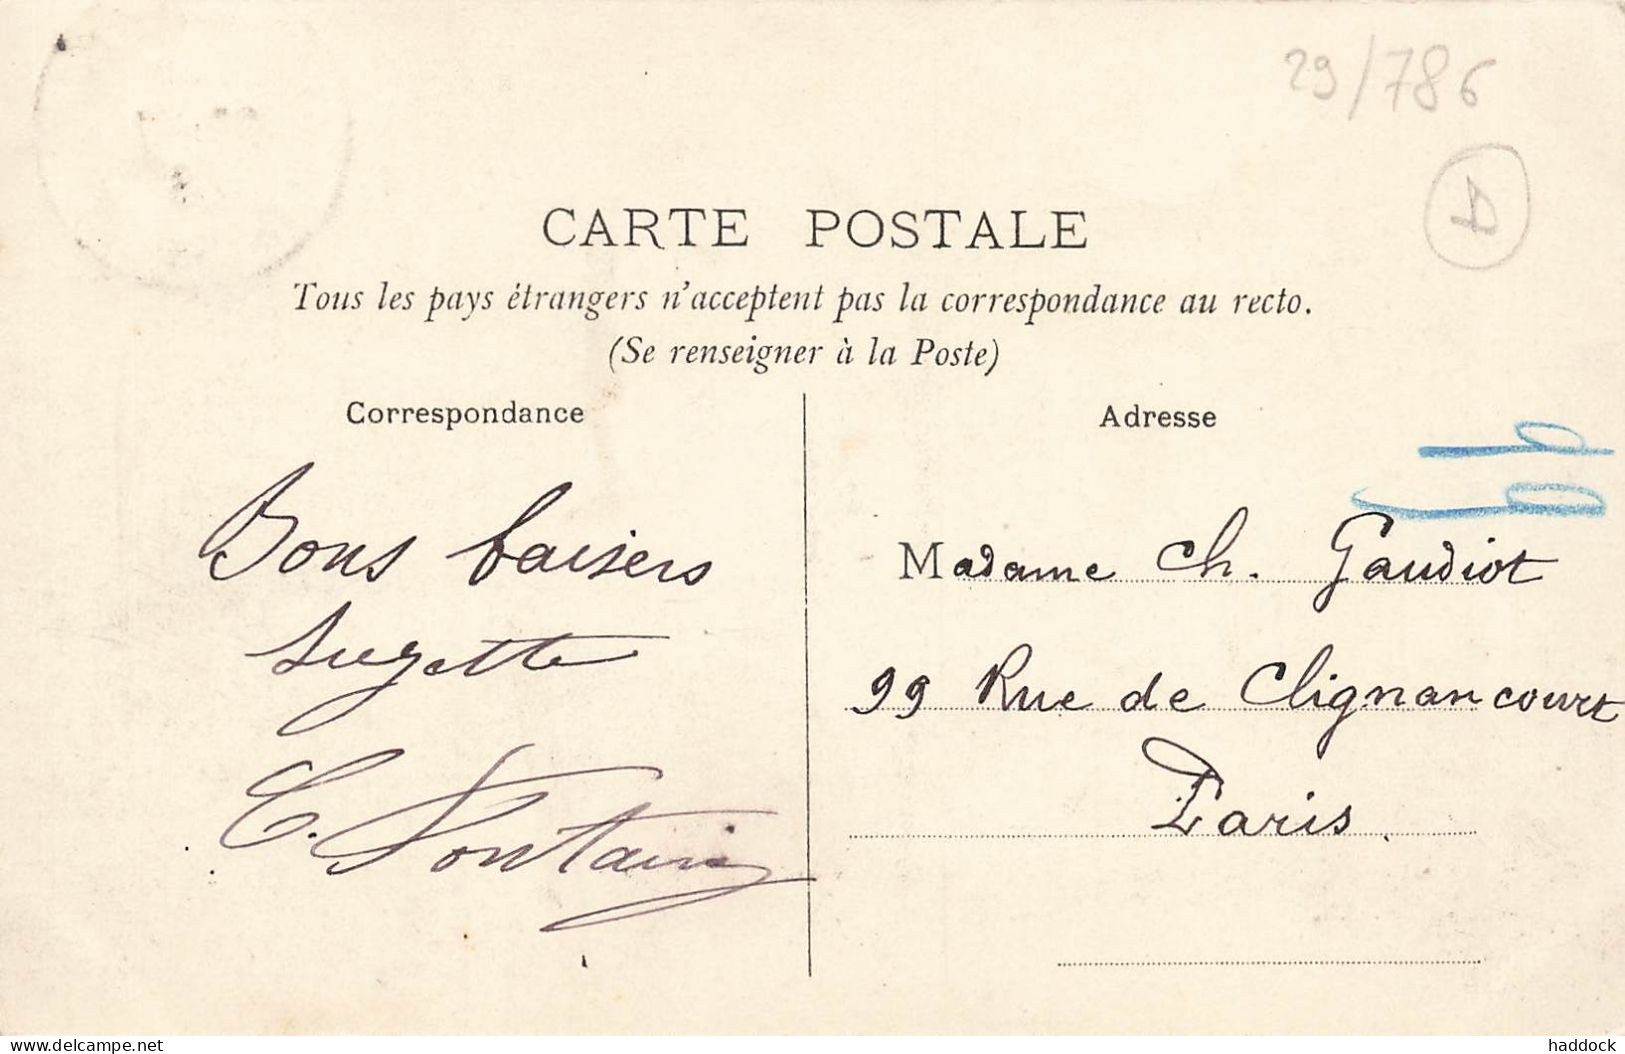 29/786
D
CARTE POSTALE
Tous les pays étrangers n'acceptent pas la correspondance au recto.
(Se renseigner à la Poste)
Correspondance
Bons baisers
Suzette
C. Fontaine
Adresse
Madame Ch. Gaudiot
99 Rue de Clignancourt
Paris.
www.delcampe.net
haddock